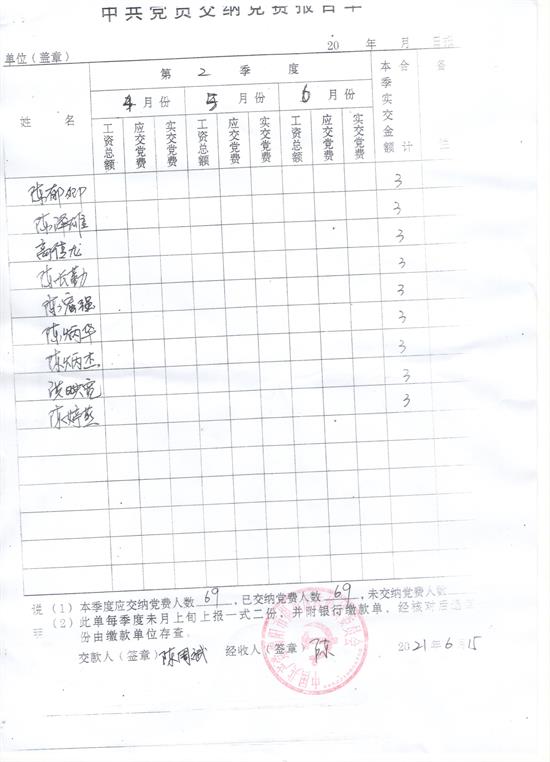 中共党员交纳党费报告单
单位（盖章） 20 年 月 日
姓 名 第 2 季 度 本季实交金额 合计 备注
4月份 5月份 6月份
工资总额 应交党费 实交党费 工资总额 应交党费 实交党费 工资总额 应交党费 实交党费
陈郁 3
陈泽雄 3
高佳龙 3
陈长勤 3
陈宏强 3
陈炳华 3
陈炳杰 3
洪映霓 3
陈婷燕 3
说 （1）本季度应交纳党费人数 69 ，已交纳党费人数 69 ，未交纳党费人数
（2）此单每季度末月上旬上报一式二份，并附银行缴款单，经核对后退
份由缴款单位存查。
交款人（签章）陈周斌 经收人（签章 陈 2021年6月15